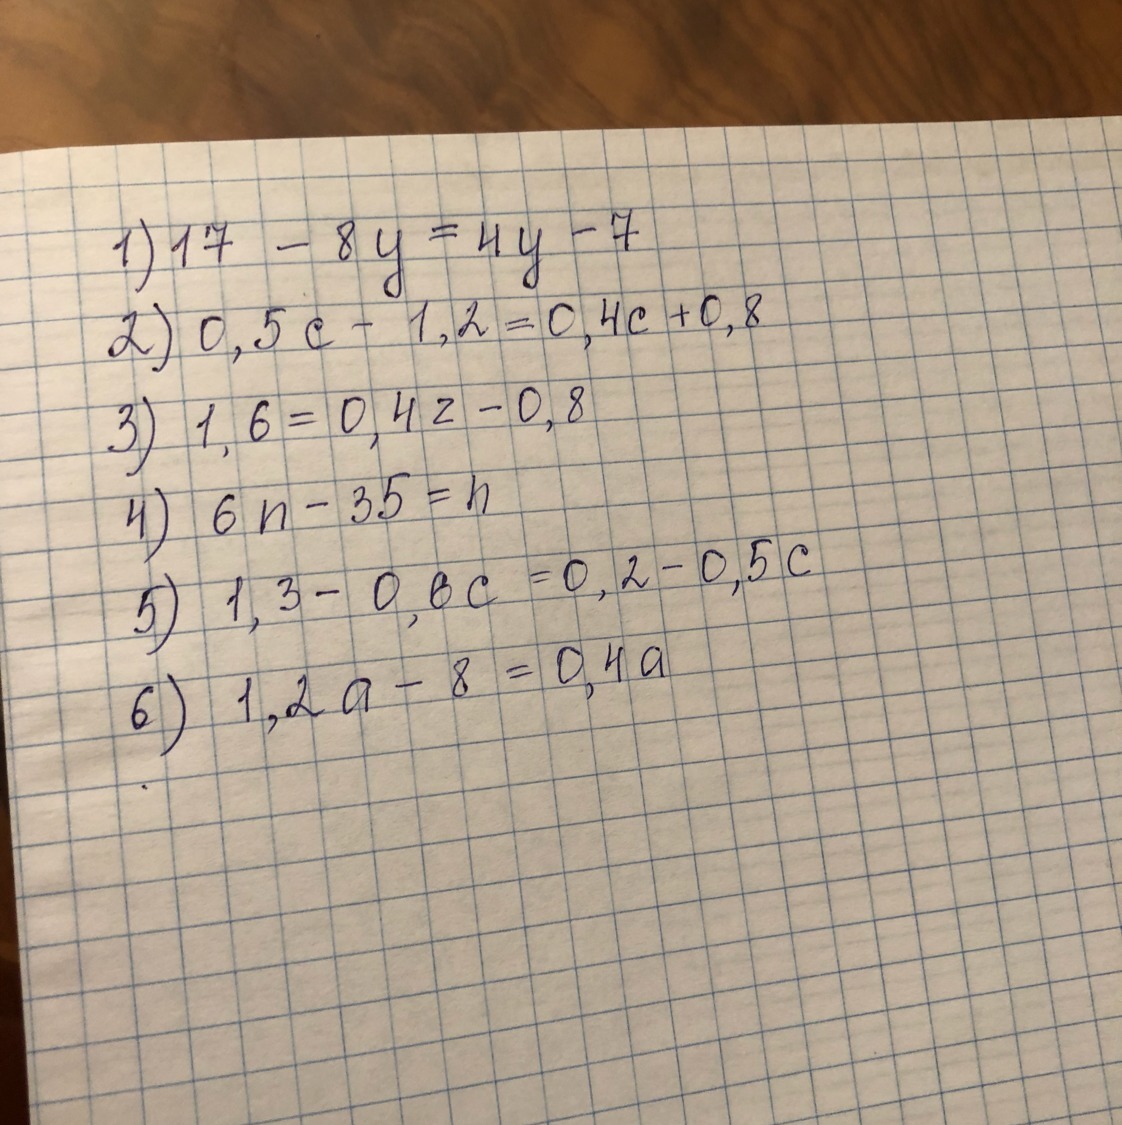 1) 17 - 8y = 4y - 7
2) 0,5c - 1,2 = 0,4c + 0,8
3) 1,6 = 0,4z - 0,8
4) 6n - 35 = n
5) 1,3 - 0,6c = 0,2 - 0,5c
6) 1,2a - 8 = 0,4a